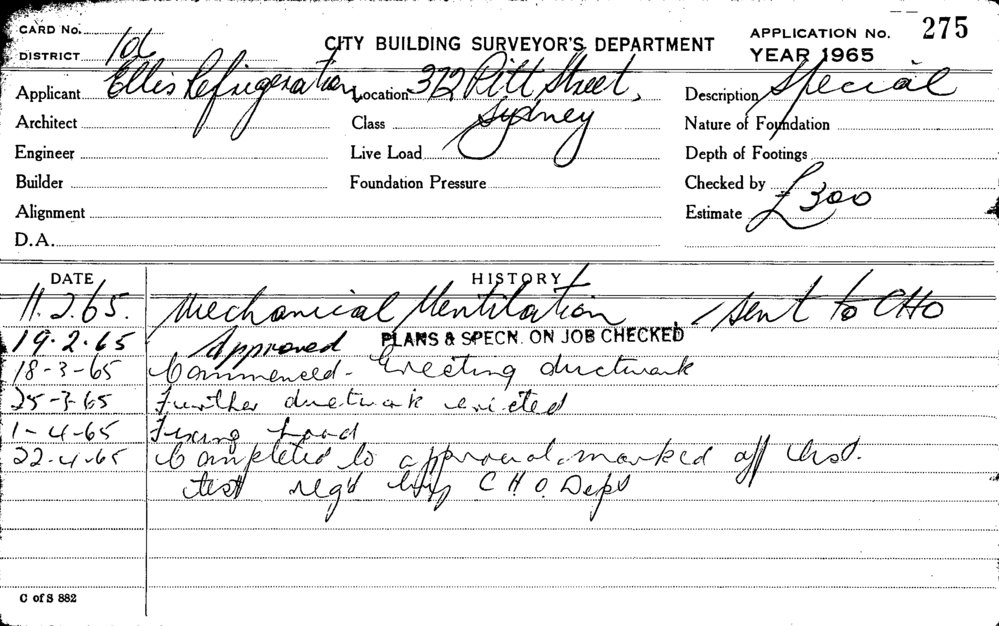 CARD No. 275
DISTRICT CITY BUILDING SURVEYOR'S DEPARTMENT APPLICATION No.
YEAR 1965
Applicant Ellis Refrigeration Location 372 Pitt Street, Description Special
Architect Class Sydney Nature of Foundation
Engineer Live Load Depth of Footings
Builder Foundation Pressure Checked by
Alignment Estimate £300
D.A.
DATE HISTORY
11.2.65. Mechanical Ventilation - sent to CHO
19.2.65 Approved PLANS & SPECN. ON JOB CHECKED
18-3-65 Commenced - Erecting ductwork
25-3-65 Further ductwork erected
1-4-65 Fixing hood
22.4.65 Completed to approval. marked off
test req'd by C.H.O. Dept
C of S 882